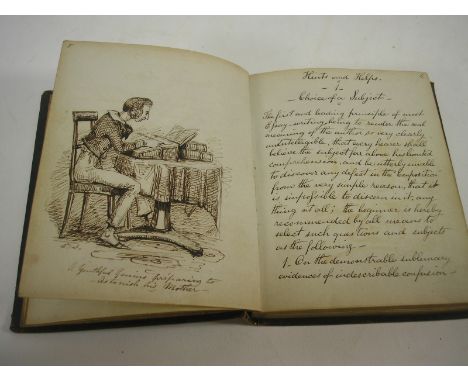 5
E.S.
A Youthful Genius preparing to
astonish his Mother
6
Hints and Helps.
- 1 -
- Choice of a Subject -
The first and leading principle of most
Essay-writing, being to render the real
meaning of the author so very clearly
unintelligible, that every hearer shall
believe the subject far above his limited
comprehension, and be utterly unable
to discover any defect in the Composition
from the very simple reason, that it
is impossible to discern in it, any
thing at all; the beginner is hereby
recommended by all means to
select such questions and subjects
as the following -
1. On the demonstrable sublunary
evidences of indescribable confusion -